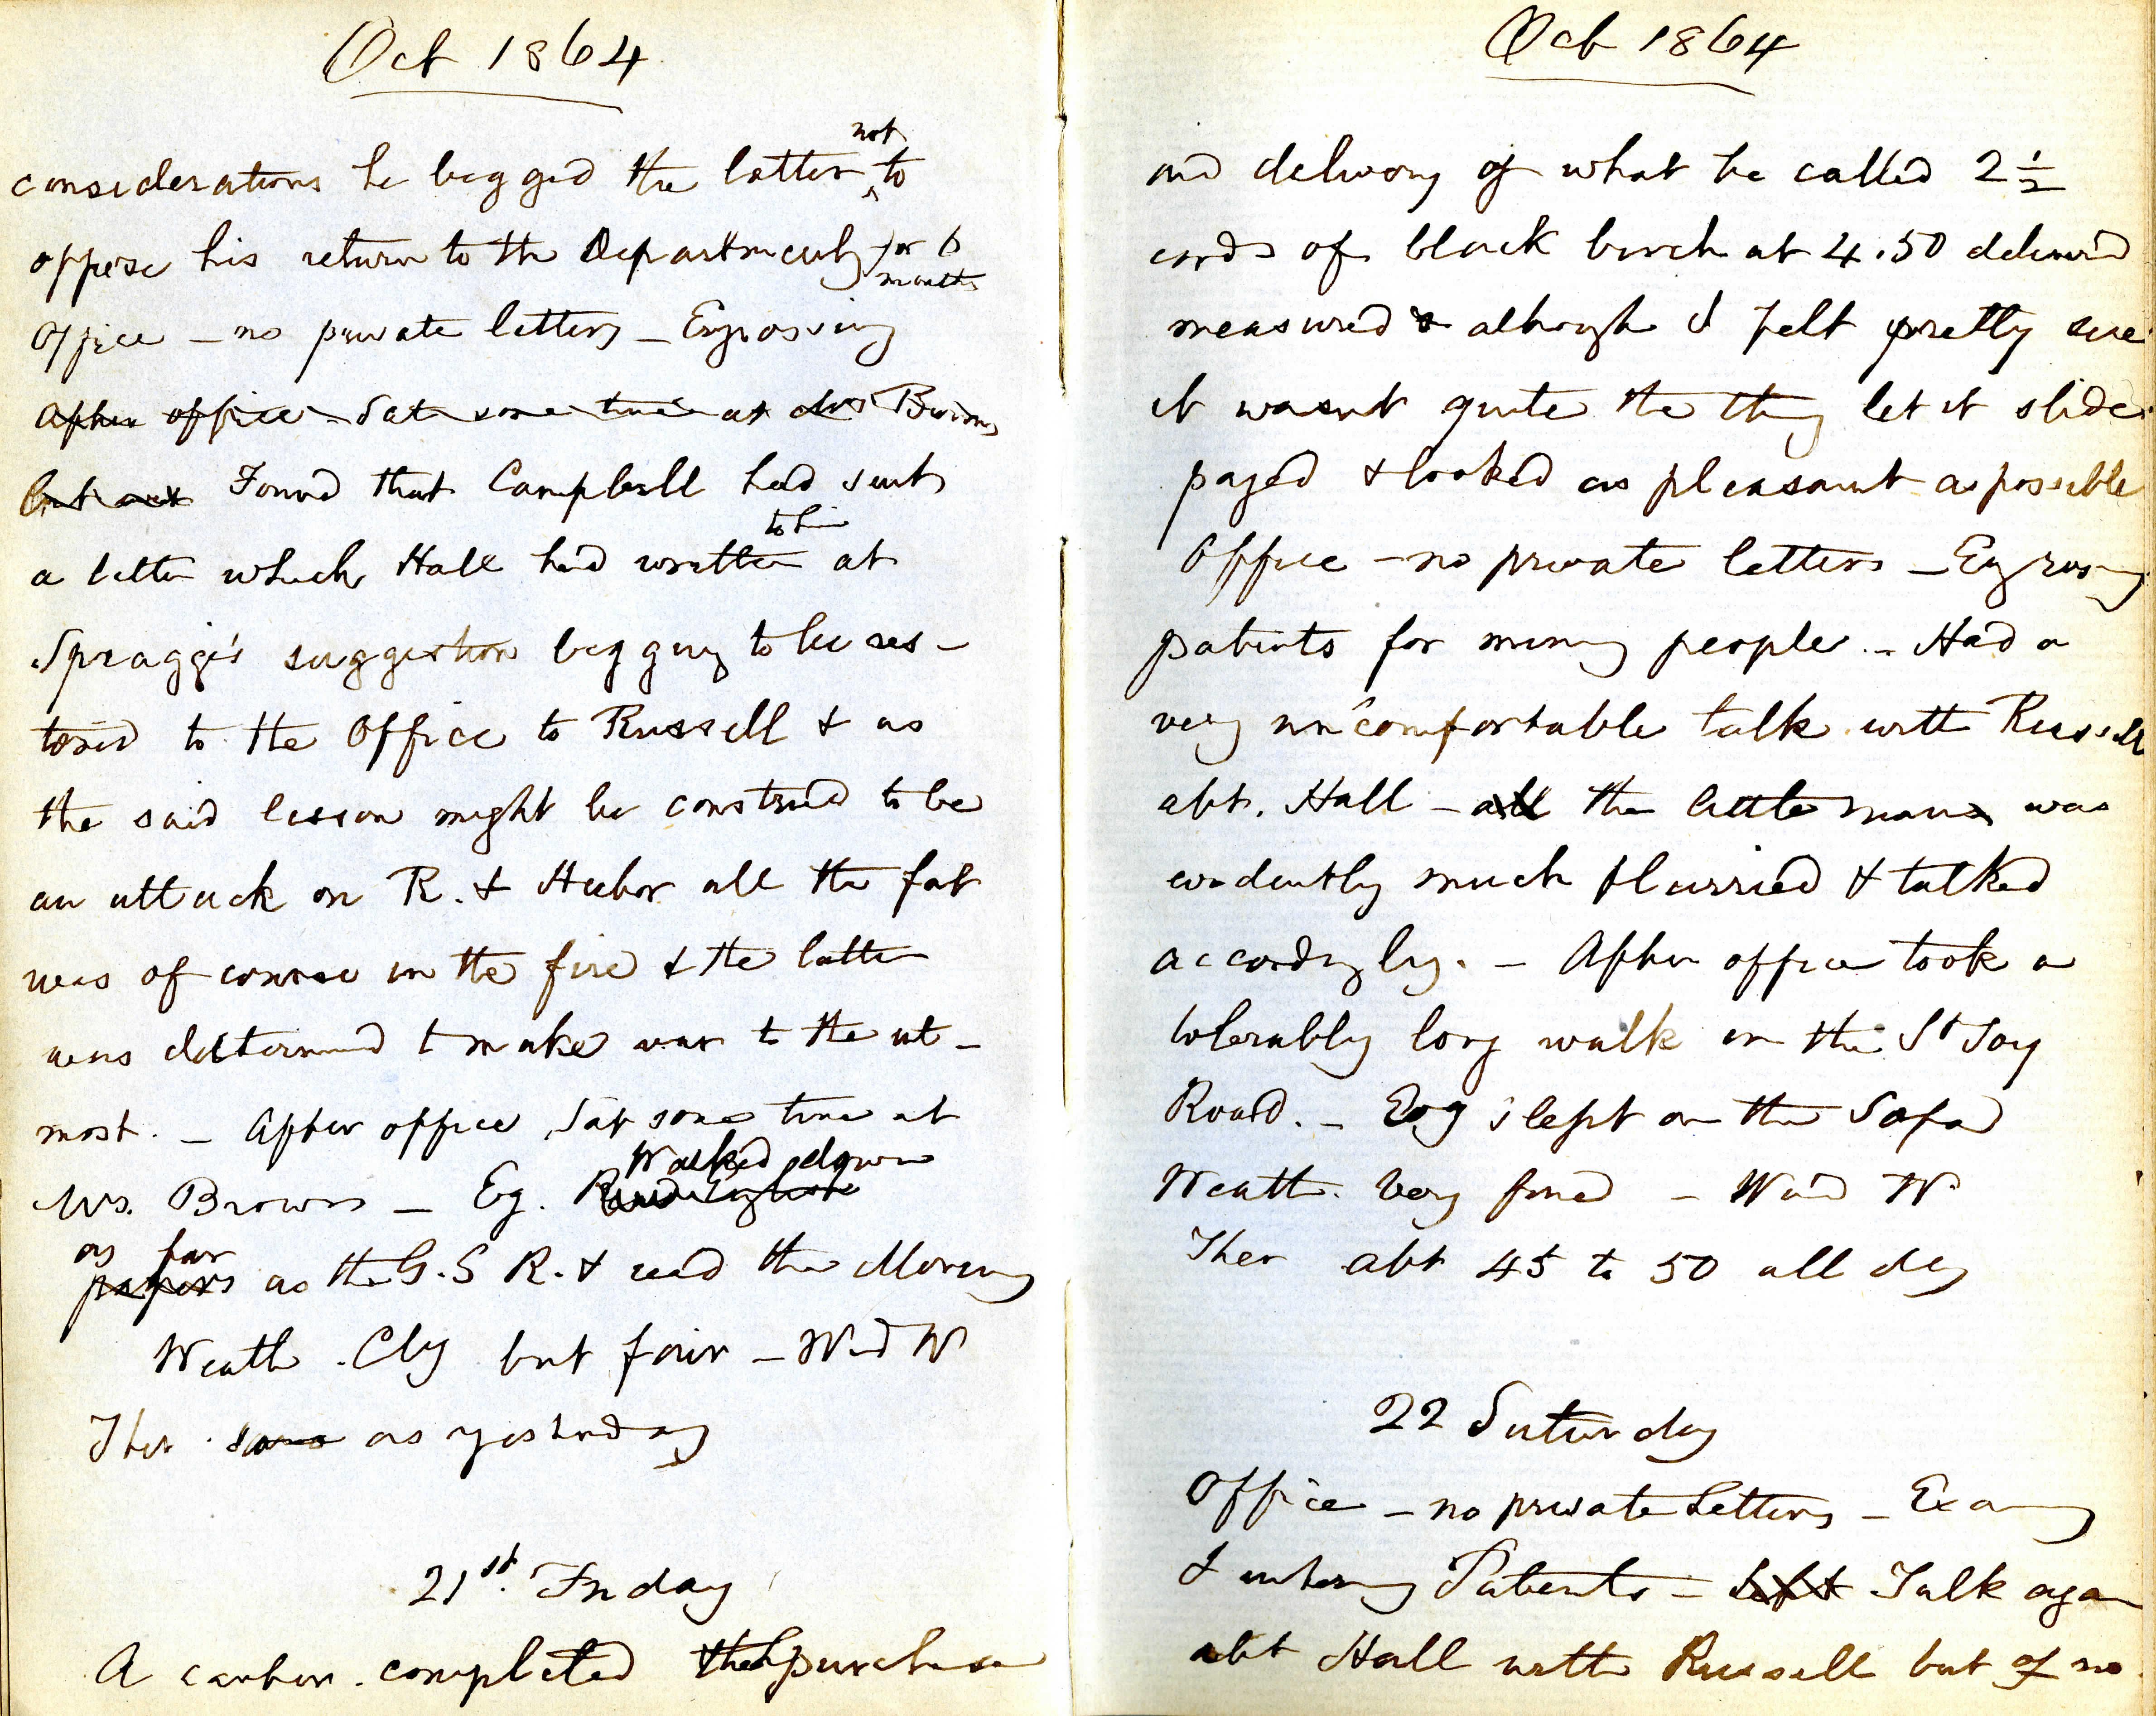 Oct 1864
not
considerations he begged the latter ‸ to
oppose his return to the Department for 6
months
Office – no private letters – Engrossing
After office – Sat some time at Mrs Browns
but not Found that Campbell had sent
to him
a letter which Hall had written at
Spragge's suggestion begging to be res-
tored to the Office to Russell & as
the said lesson might be construed to be
an attack on R. & Hector all the fat
was of course in the fire & the latter
was determined to make war to the ut-
most. – After office sat some time at
Walked down
Mrs. Browns – Eg. Read English
as far
papers as the G.S R. & read the Morning
Weath. Cly but fair – Wind W
Ther same as yesterday
21st. Friday
A carter completed the purchase
Oct 1864
and delivery of what he called 2 ½
cords of black birch at 4.50 deliver'd
measured & although I felt pretty sure
it wasnt quite the thing let it slide
payed & looked as pleasant as possible
Office – no private letters – Engrossing
patents for mining people – Had a
very uncomfortable talk with Russell
abt. Hall – all the little man was
evidently much flurried & talked
accordingly. – After office took a
tolerably long walk on the St Foy
Road. – Evg slept on the Sofa
Weath. Very fine – Wind W
Ther abt 45 to 50 all day
22 Saturday
Office – no private Letters – Examg
& entering Patents – left Talk again
abt Hall with Russell but of no